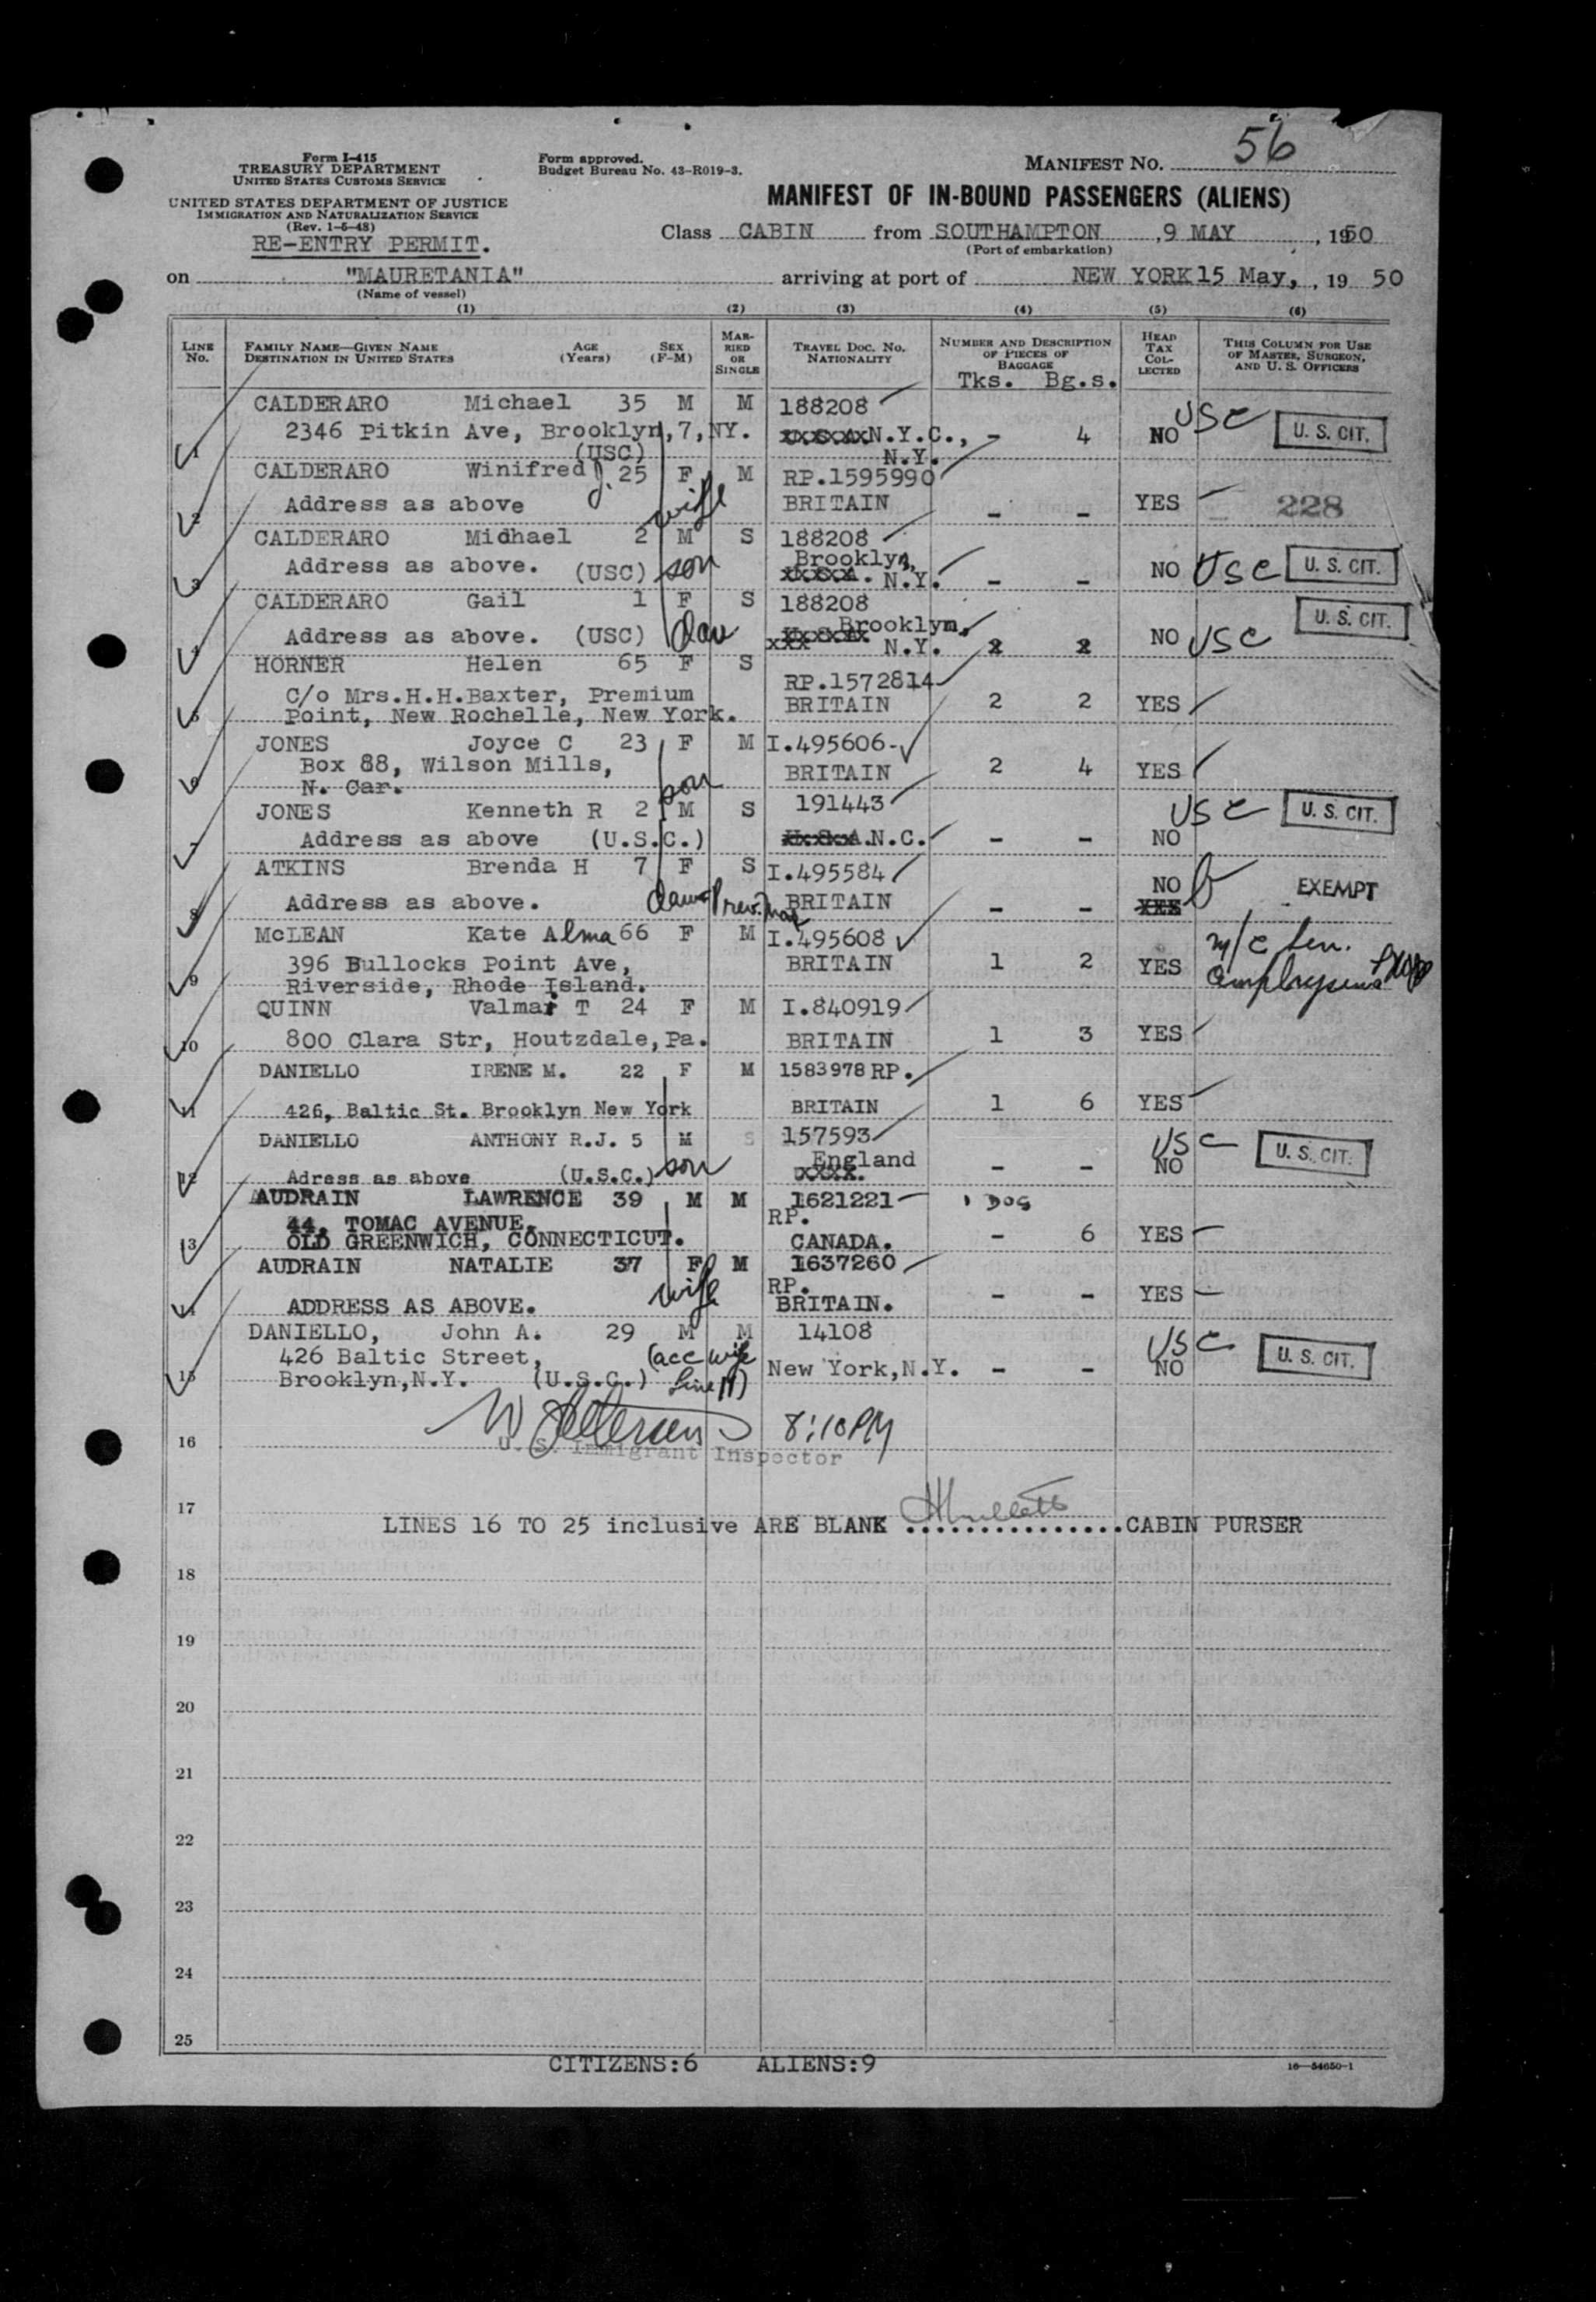 56
Form I-415
TREASURY DEPARTMENT
UNITED STATES CUSTOMS SERVICE
Form approved.
Budget Bureau No. 43-R019-3.
MANIFEST NO.
UNITED STATES DEPARTMENT OF JUSTICE
IMMIGRATION AND NATURALIZATION SERVICE
(Rev. 1-6-48)
RE-ENTRY PERMIT.
MANIFEST OF IN-BOUND PASSENGERS (ALIENS)
Class CABIN from SOUTHAMPTON ,9 MAY , 1950
(Port of embarkation)
on "MAURETANIA" arriving at port of NEW YORK 15 May, , 19 50
(Name of vessel)
(1) (2) (3) (4) (5) (6)
LINE NO. FAMILY NAME—GIVEN NAME DESTINATION IN UNITED STATES AGE (Years) SEX (F-M) MARRIED OR SINGLE TRAVEL DOC. NO. NATIONALITY NUMBER AND DESCRIPTION OF PIECES OF BAGGAGE HEAD TAX COLLECTED THIS COLUMN FOR USE OF MASTER, SURGEON, AND U. S. OFFICERS
Tks. Bg.s.
CALDERARO Michael 35 M M 188208 USC U. S. CIT.
1 2346 Pitkin Ave, Brooklyn,7,NY. N.Y.C., - 4 NO
(USC) N.Y.
CALDERARO Winifred J. 25 F M RP.1595990
2 Address as above wife BRITAIN - - YES 228
CALDERARO Midhael 2 M S 188208
3 Address as above. (USC) son Brooklyn, N.Y. - - NO USC U. S. CIT.
CALDERARO Gail 1 F S 188208 U. S. CIT.
4 Address as above. (USC) dau Brooklyn, N.Y. NO USC
HORNER Helen 65 F S RP.1572814
C/o Mrs.H.H.Baxter, Premium BRITAIN 2 2 YES
5 Point, New Rochelle, New York.
JONES Joyce C 23 F M I.495606-
Box 88, Wilson Mills, BRITAIN 2 4 YES
6 N. Car.
JONES Kenneth R 2 M S 191443 USC U. S. CIT.
son
7 Address as above (U.S.C.) N.C. - - NO
ATKINS Brenda H 7 F S I.495584 NO EXEMPT
8 Address as above. BRITAIN - - YES
McLEAN Kate Alma 66 F M I.495608
396 Bullocks Point Ave, BRITAIN 1 2 YES m/c
9 Riverside, Rhode Island.
QUINN Valmai T 24 F M I.840919
10 800 Clara Str, Houtzdale,Pa. BRITAIN 1 3 YES
DANIELLO IRENE M. 22 F M 1583978 RP.
11 426, Baltic St. Brooklyn New York BRITAIN 1 6 YES
DANIELLO ANTHONY R.J. 5 M S 157593 USC U. S. CIT.
12 Adress as above (U.S.C.) son England - - NO
AUDRAIN LAWRENCE 39 M M 1621221 1 DOG
44, TOMAC AVENUE, RP.
13 OLD GREENWICH, CONNECTICUT. CANADA. - 6 YES
AUDRAIN NATALIE 37 F M 1637260
wife RP.
14 ADDRESS AS ABOVE. BRITAIN. - - YES
DANIELLO, John A. 29 M M 14108 USC
426 Baltic Street, (acc wife New York,N.Y. - - NO U. S. CIT.
15 Brooklyn,N.Y. (U.S.C.) Line 11)
8:10 PM
16 U. S. Immigrant Inspector
17
LINES 16 TO 25 inclusive ARE BLANK ................CABIN PURSER
18
19
20
21
22
23
24
25
CITIZENS:6 ALIENS:9
16—54650-1